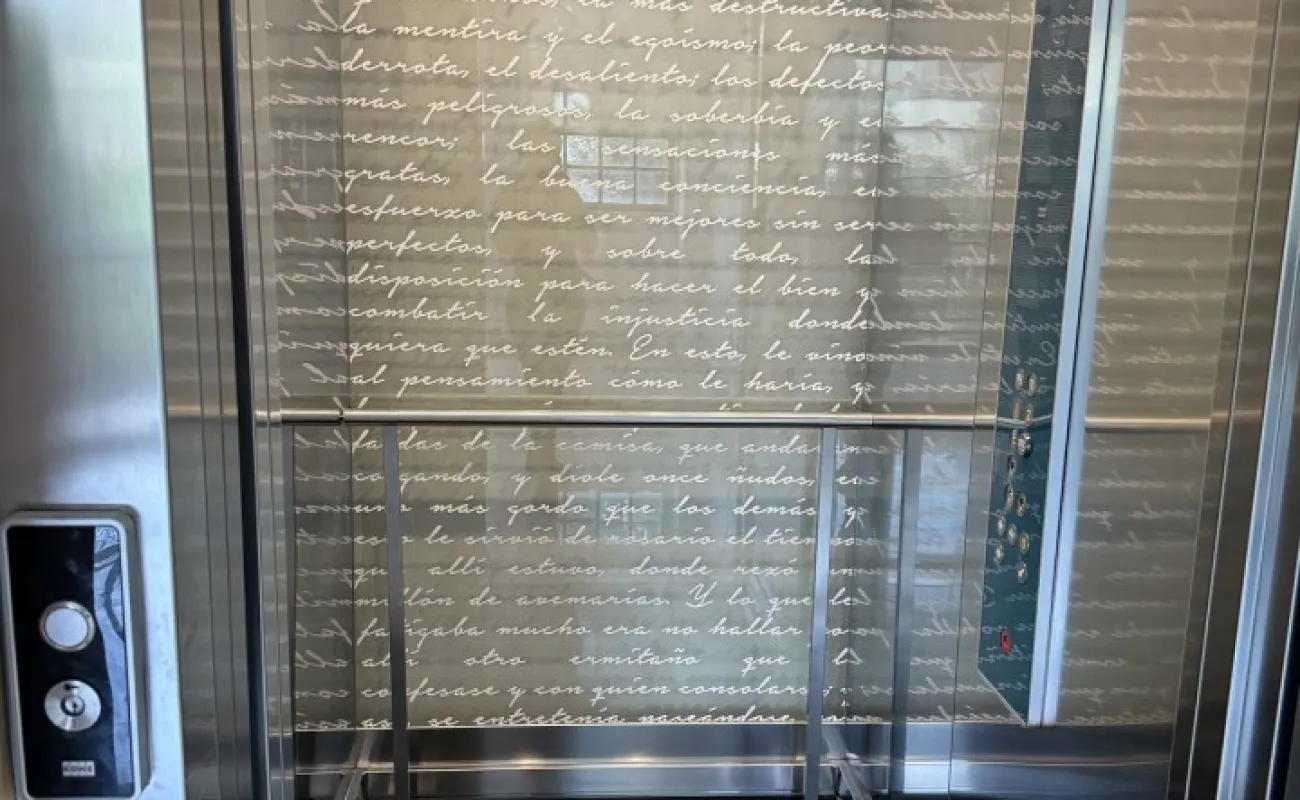 más destructiva,
la mentira y el egoísmo; la peor
derrota, el desaliento; los defectos
más peligrosos, la soberbia y el
rencor; las sensaciones más
gratas, la buena conciencia, el
esfuerzo para ser mejores sin ser
perfectos, y sobre todo, la
disposición para hacer el bien y
combatir la injusticia donde
quiera que estén. En esto, le vino
al pensamiento cómo le haría, y
faldas de la camisa, que andaban
colgando, y diole once ñudos, el
uno más gordo que los demás, y
esto le sirvió de rosario el tiempo
que allí estuvo, donde rezó un
millón de avemarías. Y lo que le
fatigaba mucho era no hallar por
allí otro ermitaño que le
confesase y con quien consolarse;
y así, se entretenía paseándose
KONE